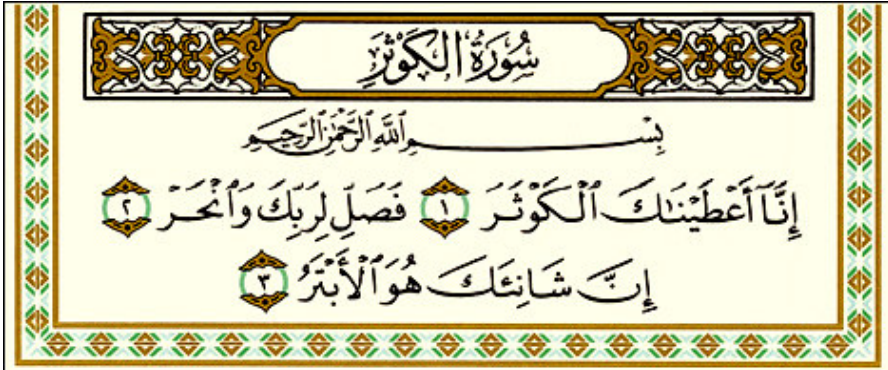 سُورَةُ الكَوْثَرِ
بِسْمِ ٱللَّهِ ٱلرَّحْمَٰنِ ٱلرَّحِيمِ
إِنَّآ أَعْطَيْنَـٰكَ ٱلْكَوْثَرَ ١ فَصَلِّ لِرَبِّكَ وَٱنْحَرْ ٢
إِنَّ شَانِئَكَ هُوَ ٱلْأَبْتَرُ ٣